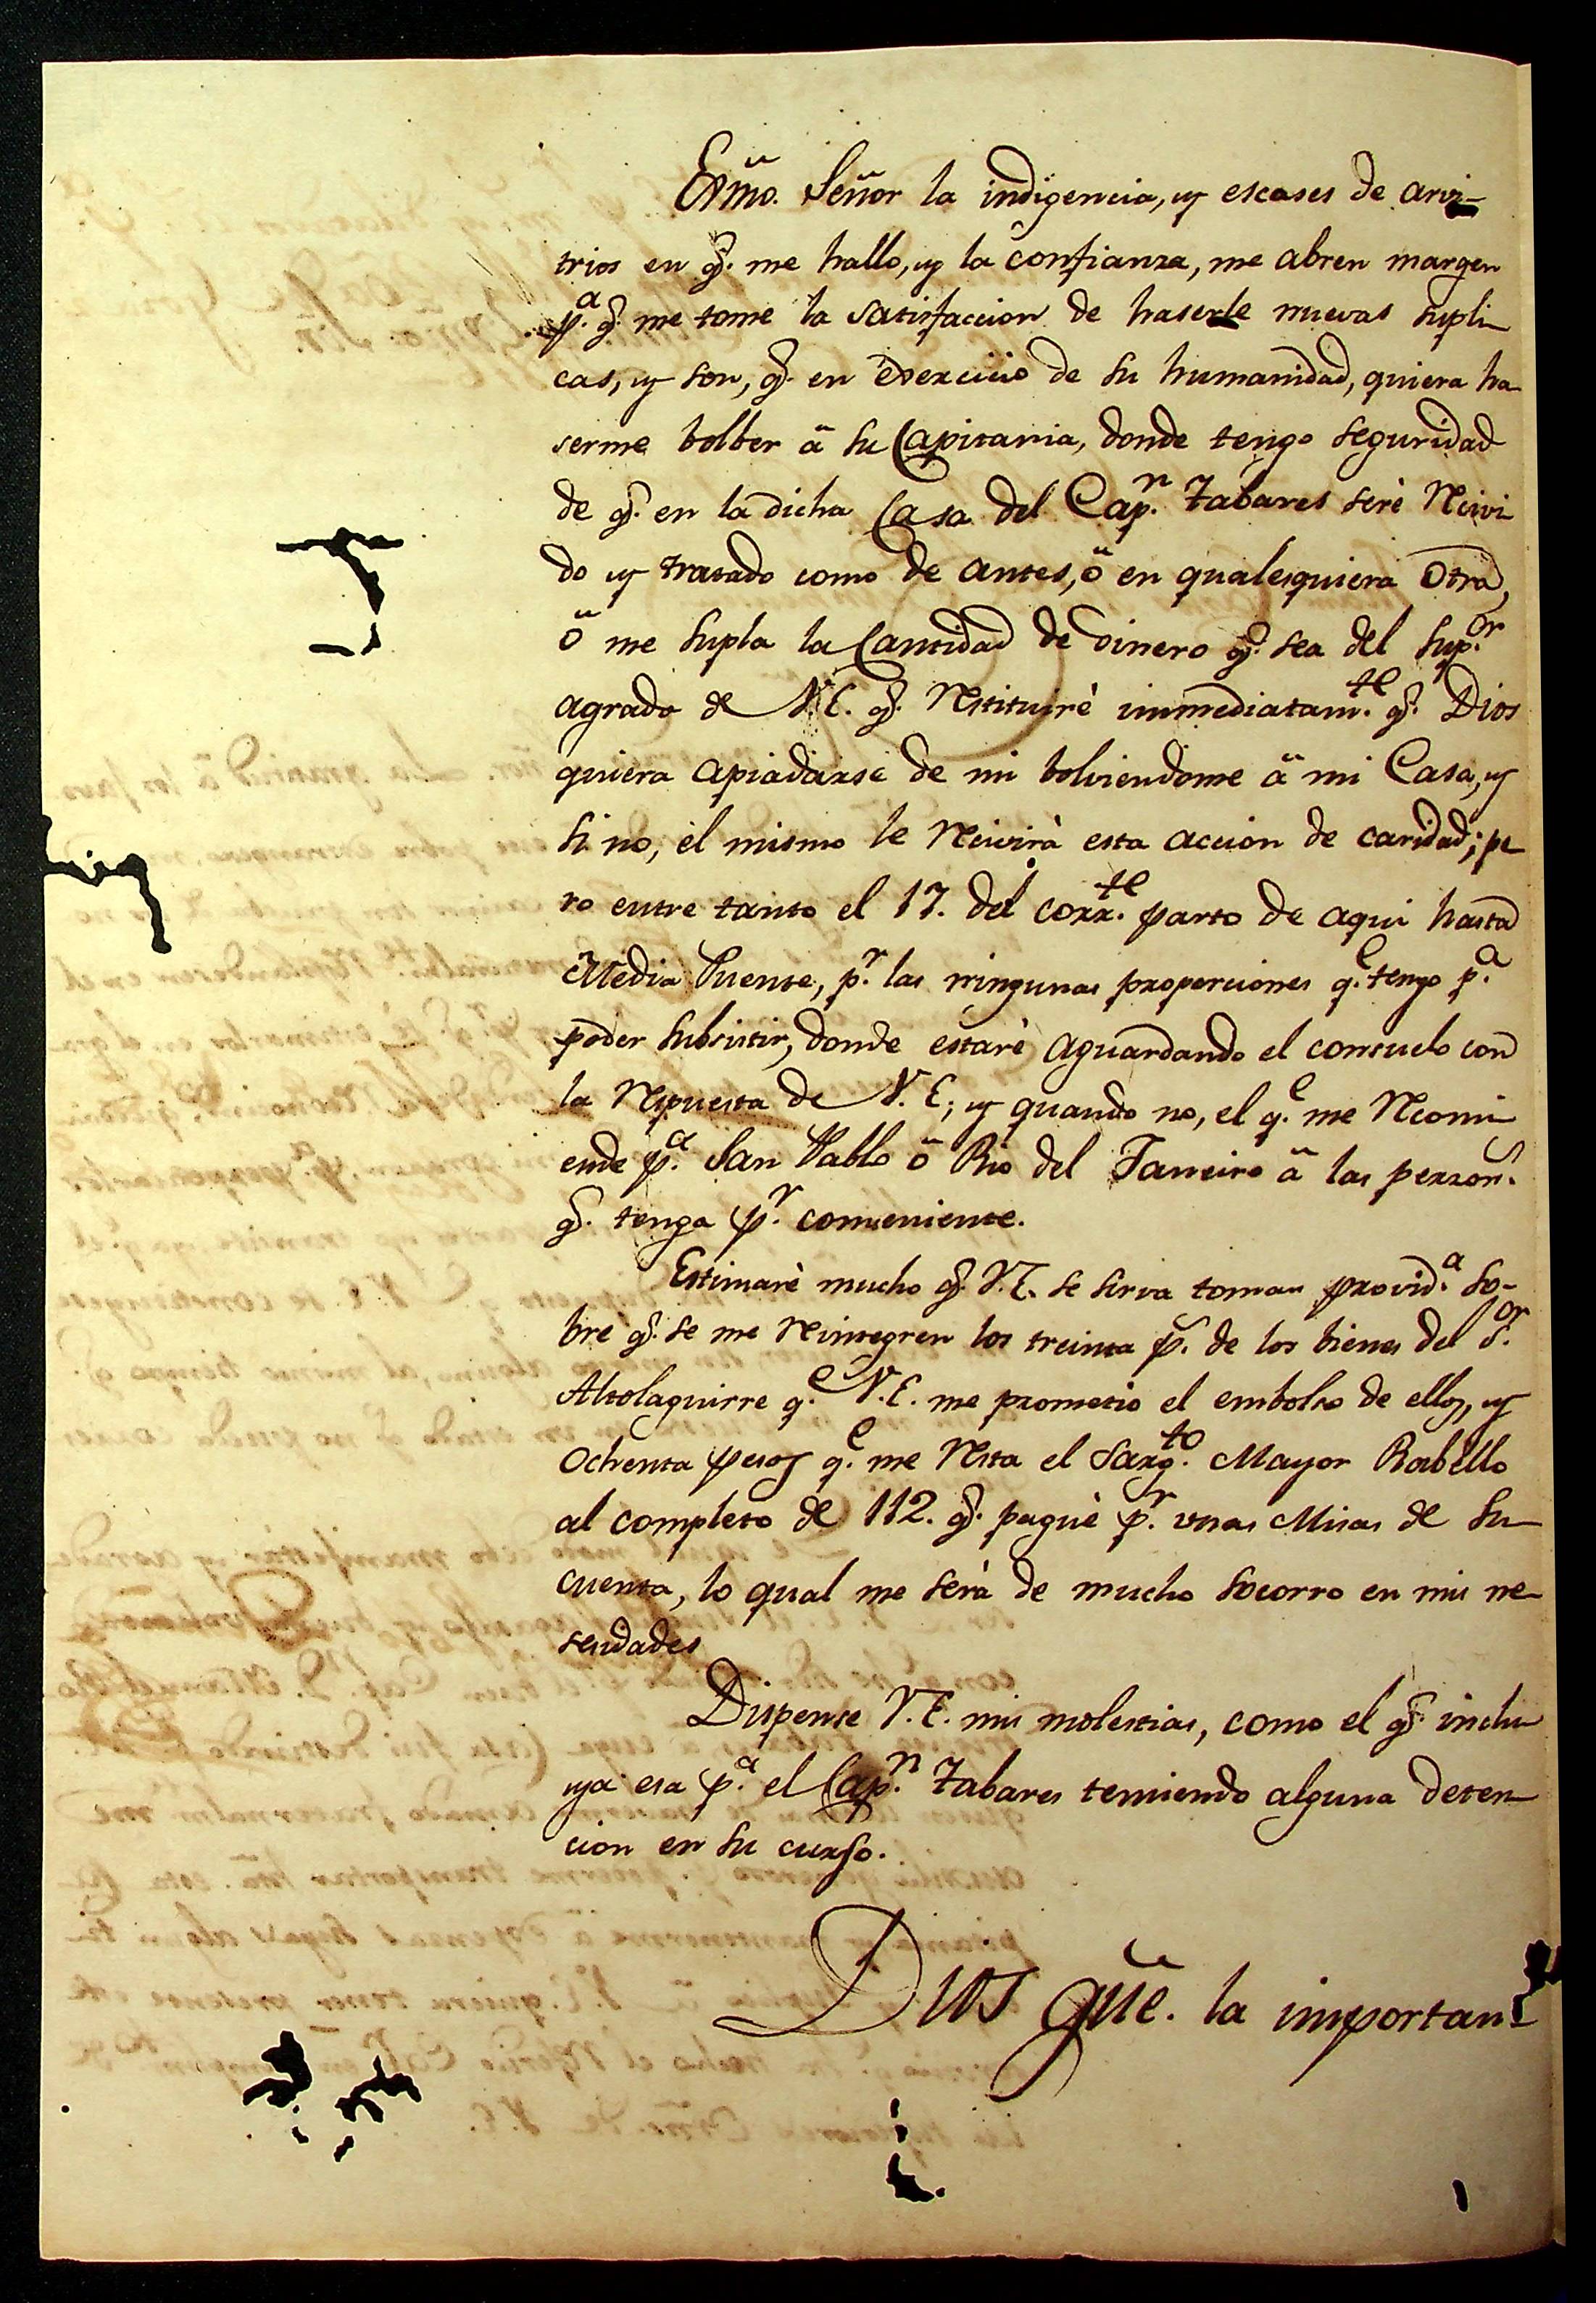 Exmo. Señor la indigencia, y escases de arvi-
trios en q.e me hallo, y la confianza, me abren margen
p.a q.e me tome la satisfaccion de haserle nuevas supli-
cas, y son, q.e en exercicio de su humanidad, quiera ha-
serme bolber â su Capitania, donde tengo seguridad
de q.e en la dicha Casa del Cap.n Tabares serè Reciví-
do y tratado como de antes, ô en qualesquiera otra,
ô me supla la Cantidad de dinero q.e sea del sup.or
agrado de V.E. q.e Restituirè immediatam.te q.e Dios
quiera apiadarse de mi bolviendome â mi Casa, y
si no, èl mismo le Recivirà esta accion de caridad; pe-
ro entre tanto el 17. del corr.te parto de aqui hasta
Media Puente, p.r las ningunas proporciones q.e tengo p.a
poder subsistir, donde estarè aguardando el consuelo con
la Respuesta de V.E; y quando no, el q.e me Recomi-
ende p.a San Pablo ô Rio del Janeiro â las person.s
q.e tenga p.r conveniente.
Estimarè mucho q.e V.E. se sirva tomar provid.a so-
bre q.e se me Reintegren los treinta p.s de los bienes del S.or
Altolaguirre q.e V.E. me prometio el embolso de ellos, y
ochenta pesos q.e me Resta el Sarg.to Mayor Rabello
al completo de 112. q.e paguè p.r unas Misas de su
cuenta, lo qual me serà de mucho socorro en mis ne-
sesidades
Dispense V.E. mis molestias, como el q.e inclu-
ya esa p.a el Cap.n Tabares temiendo alguna deten-
cion en su curso.
Dios güe. la important